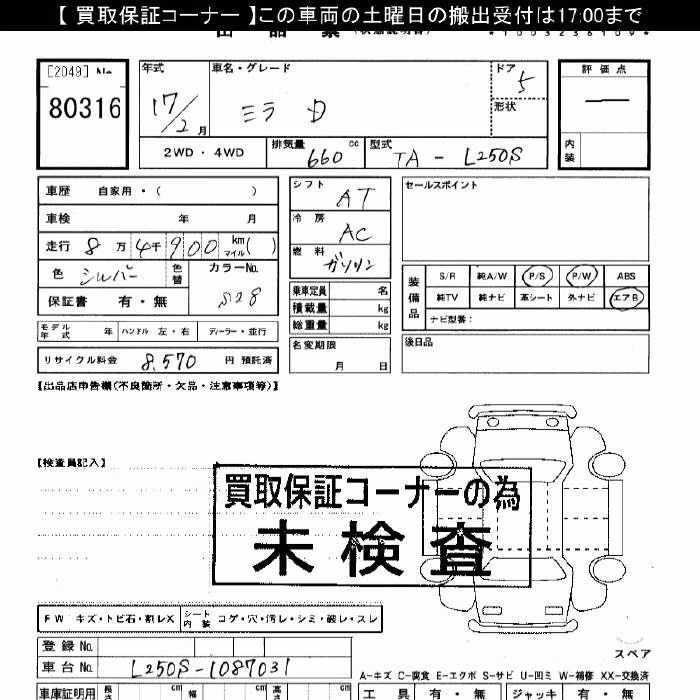 【 買取保証コーナー 】この車両の土曜日の搬出受付は17:00まで
[2049] No.
80316
年式
17/2月
車名・グレード
ミラ D
ドア
5
形状
評価点
—
内装
2WD ・ 4WD
排気量 660 cc
型式 TA - L250S
車歴 自家用・( )
車検 年 月
走行 8万4千900 km マイル( )
色 シルバー 色替
カラーNo. S28
保証書 有・無
モデル年式 年 ハンドル 左・右 ディーラー・並行
リサイクル料金 8,570 円 預託済
シフト AT
冷房 AC
燃料 ガソリン
乗車定員 名
積載量 kg
総重量 kg
名変期限
月 日
セールスポイント
装備品
S/R 純A/W P/S P/W ABS
純TV 純ナビ 革シート 外ナビ エアB
ナビ型番:
後日品
【出品店申告欄(不良箇所・欠品・注意事項等)】
【検査員記入】
買取保証コーナーの為
未検査
FW キズ・トビ石・割レX
シート内装 コゲ・穴・汚レ・シミ・破レ・スレ
登録No.
車台No. L250S-1087031
スペア
A-キズ C-腐食 E-エクボ S-サビ U-凹ミ W-補修 XX-交換済
車庫証明用 長さ cm 幅 cm 高さ cm
工具 有・無 ジャッキ 有・無